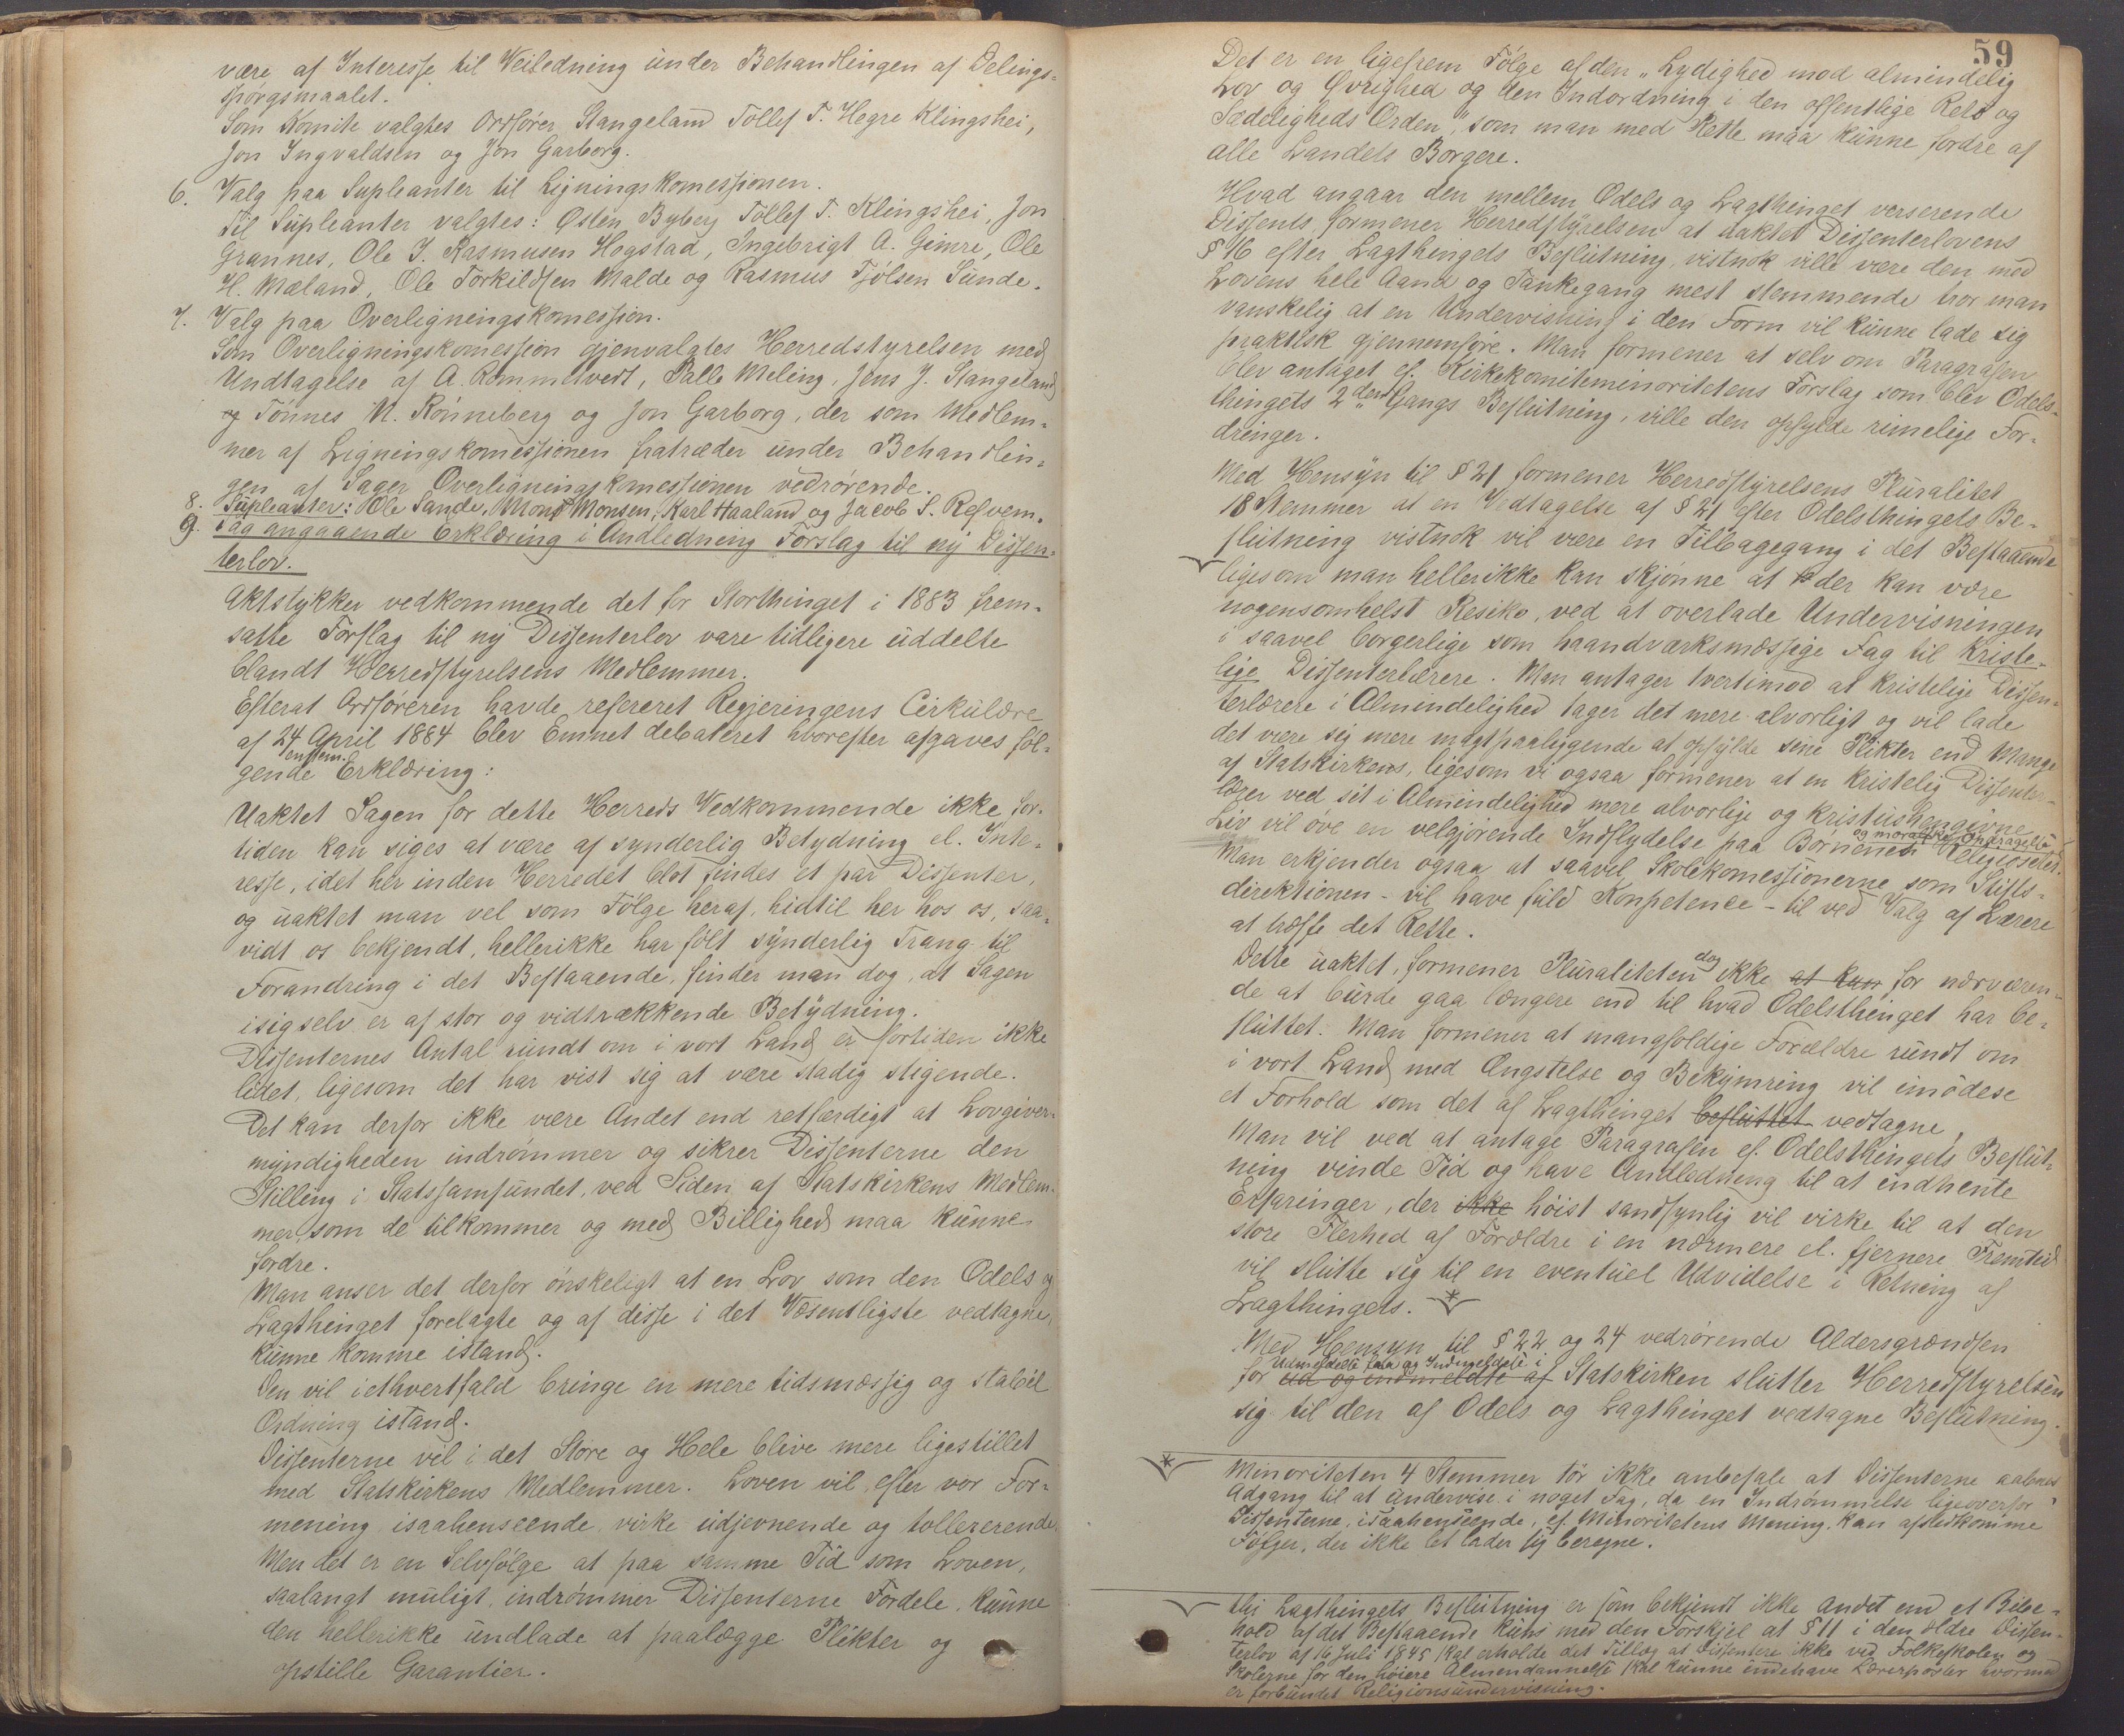 være af Interesse til Veiledning under Behandlingen af Delings-
spørgsmaalet.
Som Komite valgtes Ordfører Stangeland Tollef T. Hegre Klingshei,
Jon Ingvaldsen og Jon Garborg.
6. Valg paa Supleanter til Ligningskomessionen.
Til Supleanter valgtes: Østen Byberg Tollef T. Klingshei, Jon
Grannes, Ole J. Rasmusen Hogstad, Ingebrigt A. Gimre, Ole
H. Mæland, Ole Torkildsen Malde og Rasmus Tjølsen Sunde.
7. Valg paa Overligningskomession.
Som Overligningskomession gjenvalgtes Herredstyrelsen med
Undtagelse af A. Rommetvedt, Palle Meling, Jens J. Stangeland
og Tønnes N. Rønneberg og Jon Garborg, der som Medlem-
mer af Ligningskomessionen fratræder under Behandlin-
gen af Sager Overligningskomessionen vedrørende.
8. Supleanter: Ole Sande, Mons Monsen, Karl Haaland og Jacob S. Refvem.
9. Sag angaaende Erklæring i Andledning Forslag til ny Dissen-
terlov.
Aktstykker vedkommende det for Storthinget i 1883 frem-
satte Forslag til ny Dissenterlov vare tidligere uddelte
blandt Herredstyrelsens Medlemmer.
Efterat Ordføreren havde refereret Regjeringens Cirkulære
af 24 April 1884 blev Emnet debateret hvorefter afgaves føl-
enstem.
gende Erklæring:
Uaktet Sagen for dette Herreds Vedkommende ikke for-
tiden kan siges at være af synderlig Betydning el. Inte-
resse, idet her inden Herredet blot findes et par Dissenter,
og uaktet man vel som Følge heraf, hidtil her hos os, saa-
vidt os bekjendt, hellerikke har følt synderlig Trang til
Forandring i det Bestaaende, finder man dog, at Sagen
isigselv er af stor og vidtrækkende Betydning.
Dissenternes Antal rundt om i vort Land er fortiden ikke
lidet, ligesom det har vist sig at være stadig stigende.
Det kan derfor ikke være Andet end retfærdigt at Lovgiver-
myndigheden indrømmer og sikrer Dissenterne den
Stilling i Statssamfundet, ved Siden af Statskirkens Medlem-
mer, som de tilkommer og med Billighed maa kunne
fordre.
Man anser det derfor ønskeligt at en Lov som den Odels og
Lagthinget forelagte og af disse i det Væsentligste vedtagne,
kunne komme istand.
Den vil iethvertfald bringe en mere tidsmæssig og stabil
Ordning istand.
Dissenterne vil i det Store og Hele blive mere ligestillet
med Statskirkens Medlemmer. Loven vil, efter vor For-
mening isaahenseende virke udjevnende og tollererende.
Men det er en Selvfølge at paa samme Tid som Loven,
saalangt muligt, indrømmer Dissenterne Fordele, kunne
den hellerikke undlade at paalægge Plikter og
opstille Garantier.
59
Det er en ligefrem Følge af den „Lydighed mod almindelig
Lov og Øvrighed og den Indordning i den offentlige Rets og
Sædeligheds Orden," som man med Rette maa kunne fordre af
alle Landets Borgere.
Hvad angaar den mellem Odels og Lagthinget verserende
Dissents, formener Herredstyrelsen at uaktet Dissenterlovens
§ 16 efter Lagthingets Beslutning, vistnok ville være den med
Lovens hele Aand og Tankegang mest stemmende tror man
vanskelig at en Undervisning i den Form vil kunne lade sig
praktisk gjennemføre. Man formener at selv om Paragrafen
blev antaget ef. Kirkekomiteminoritetens Forslag som blev Odels-
thingets 2den Gangs Beslutning, ville den opfylde rimelige For-
dringer.
Med Hensyn til § 21 formener Herredstyrelsens Pluralitet
18 Stemmer at en Vedtagelse af § 21 efter Odelsthingets Be-
slutning vistnok vil være en Tilbagegang i det Bestaaende
ligesom man hellerikke kan skjønne at der kan være
nogensomhelst Resiko, ved at overlade Undervisningen
i saavel borgerlige som haandværksmæssige Fag til Kriste-
lige Dissenterlærere. Man antager tvertimod at kristelige Dissen-
terlærere i Almindelighed tager det mere alvorligt og vil lade
det være sig mere magtpaaliggende at opfylde sine Plikter end Mange
af Statskirkens, ligesom vi ogsaa formener at en kristelig Dissenter-
lærer ved sit i Almindelighed mere alvorlige og kristushengivne
Liv vil øve en velgjørende Indflydelse paa Børnenes Religiøsitet
og moralske Opdragelse.
Man erkjender ogsaa at saavel Skolekomessionerne som Stifts-
direktionen - vil have fuld Konpetence - til ved Valg af Lærere
at træffe det Rette.
Dette uaktet, formener Pluraliteten dog ikke at kan for nærværen-
de at burde gaa længere end til hvad Odelsthinget har be-
sluttet. Man formener at mangfoldige Forældre rundt om
i vort Land med Ængstelse og Bekymring vil imødese
et Forhold som det af Lagthinget besluttet vedtagne,
Man vil ved at antage Paragrafen ef. Odelsthingets Beslut-
ning vinde Tid og have Andledning til at indhente
Erfaringer, der ikke høist sandsynlig vil virke til at den
store Flerhed af Forældre i en nærmere el. fjernere Fremtid
vil slutte sig til en eventuel Udvidelse i Retning af
Lagthingets. *
Med Hensyn til § 22 og 24 vedrørende Aldersgrændsen
Udmeldelse fra og Indmeldelse i
for ud og indmeldte af Statskirken slutter Herredstyrelsen
sig til den af Odels og Lagthinget vedtagne Beslutning.
* Minoriteten 4 Stemmer tør ikke anbefale at Dissenterne aabnes
Adgang til at undervise i noget Fag, da en Indrømmelse ligeoverfor
Dissenterne, isaahenseende, ef. Minoritetens Mening, kan afstedkomme
Følger, der ikke let lader sig beregne.
thi Lagthingets Beslutning er som bekjendt ikke andet end et Bibe-
hold af det Bestaaende kuns med den Forskjel at § 11 i den ældre Dissen-
terlov af 16 Juli 1845 skal erholde det Tillæg at Dissentere ikke ved Folkeskolen og
Skolerne for den høiere Almendannelse skal kunne indehave Lærerposter hvormed
er forbundet Religionsundervisning.